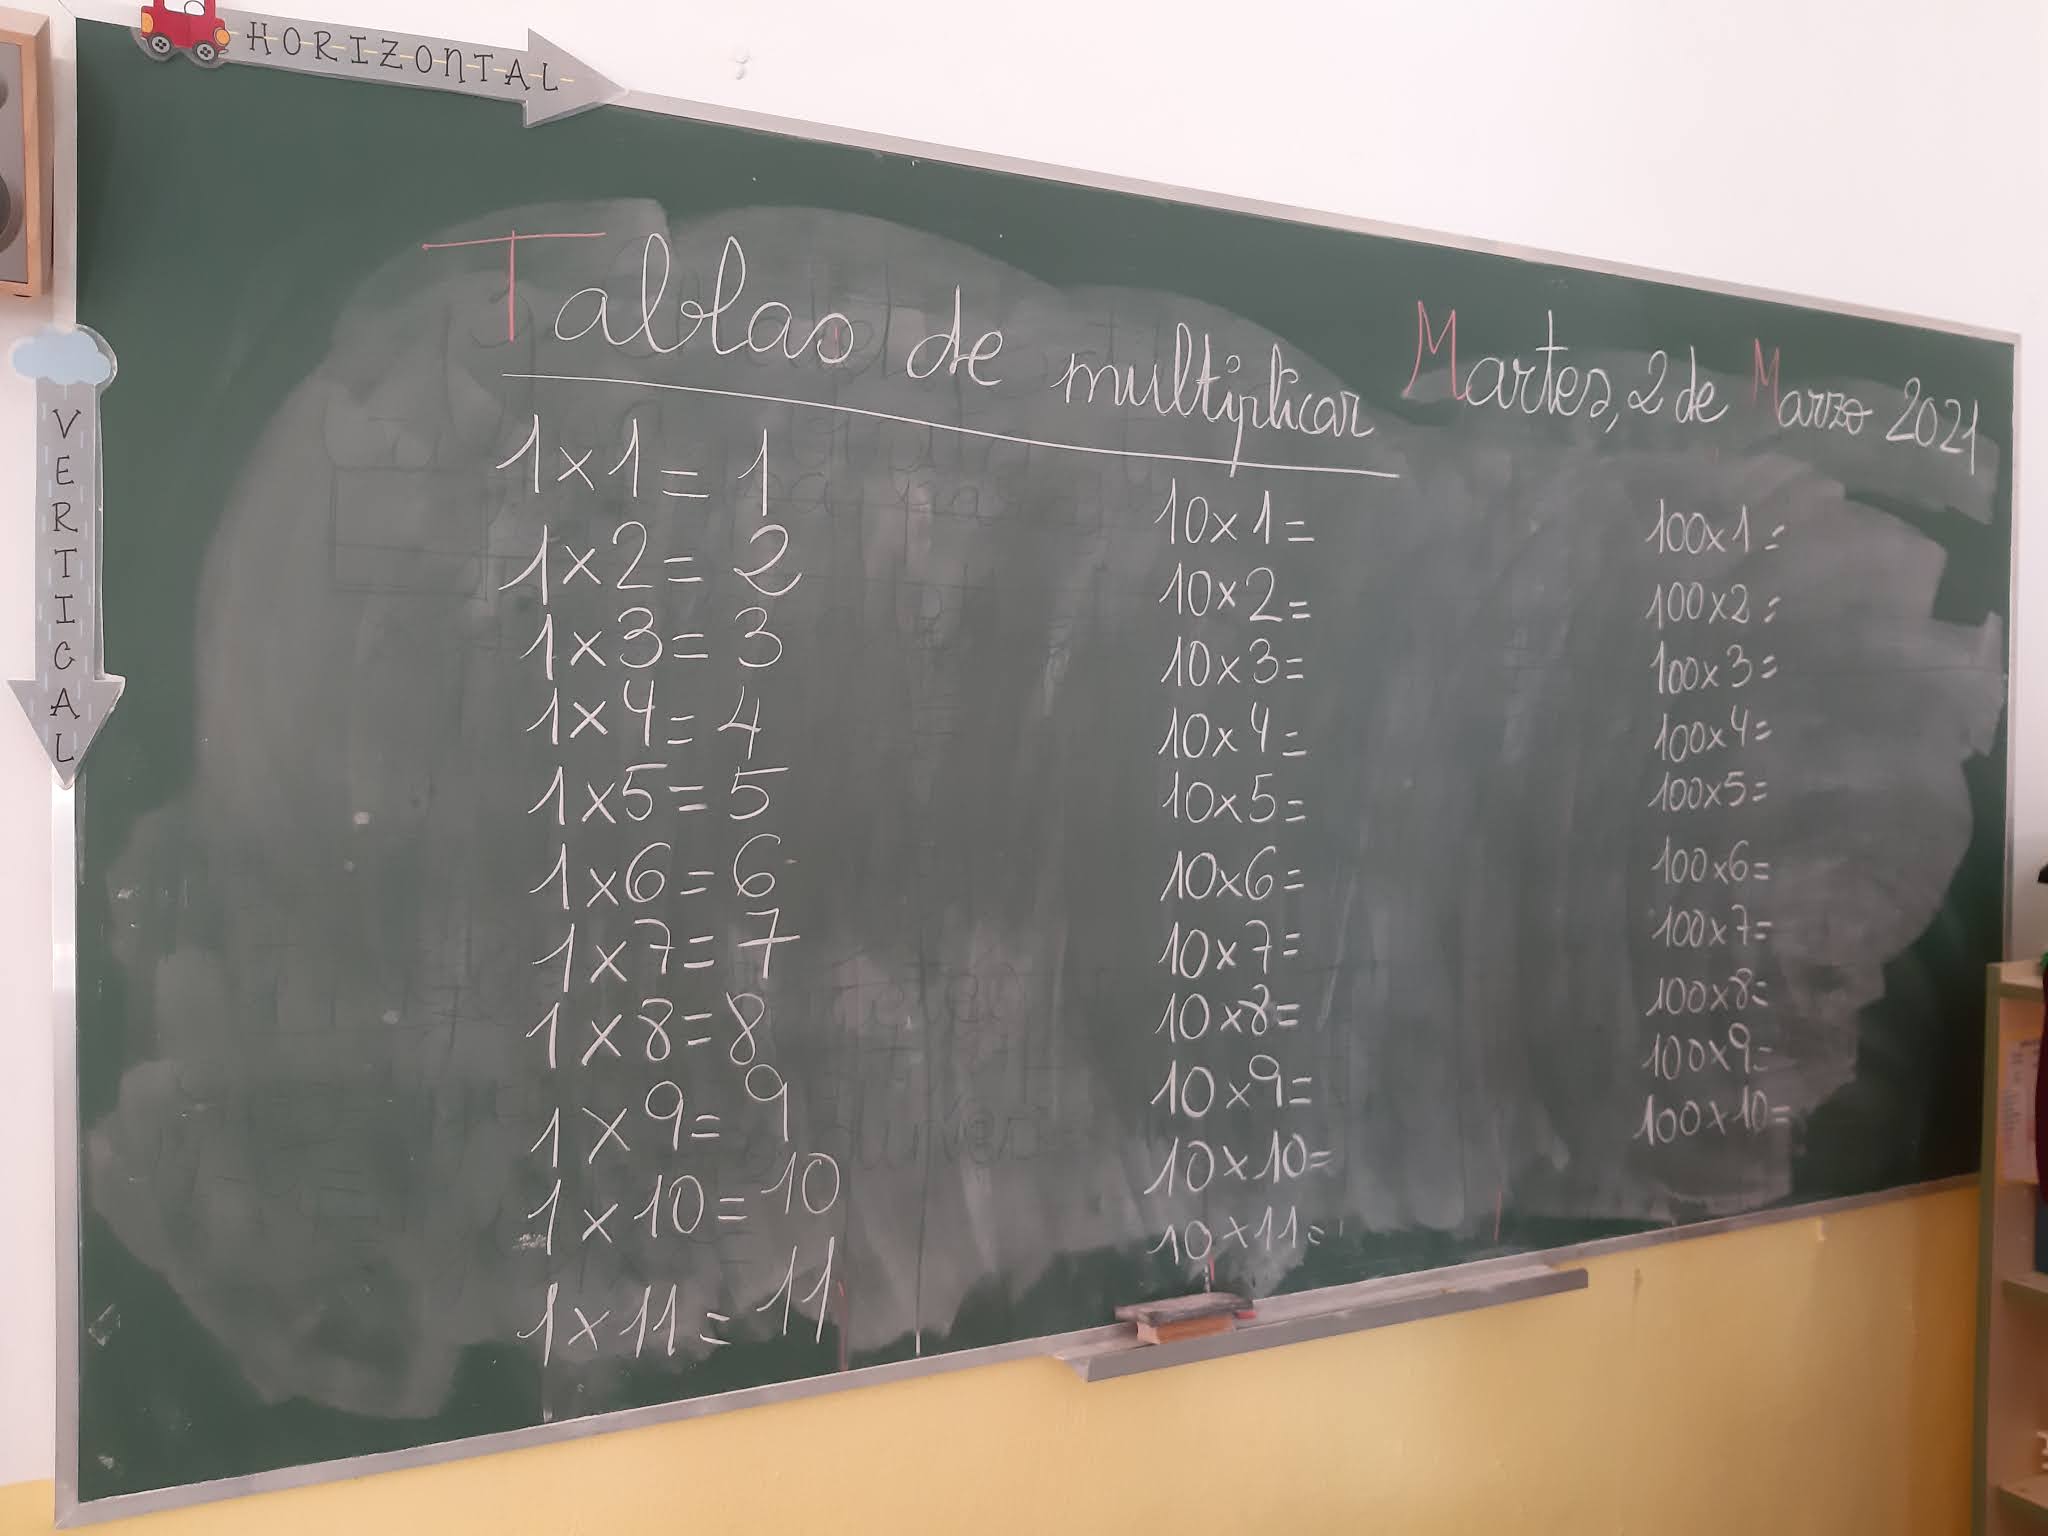 HORIZONTAL
VERTICAL
Tablas de multiplicar
Martes, 2 de Marzo 2021
1x1= 1
1x2= 2
1x3= 3
1x4= 4
1x5= 5
1x6= 6
1x7= 7
1x8= 8
1x9= 9
1x10= 10
1x11= 11
10x1=
10x2=
10x3=
10x4=
10x5=
10x6=
10x7=
10x8=
10x9=
10x10=
10x11=
100x1=
100x2=
100x3=
100x4=
100x5=
100x6=
100x7=
100x8=
100x9=
100x10=